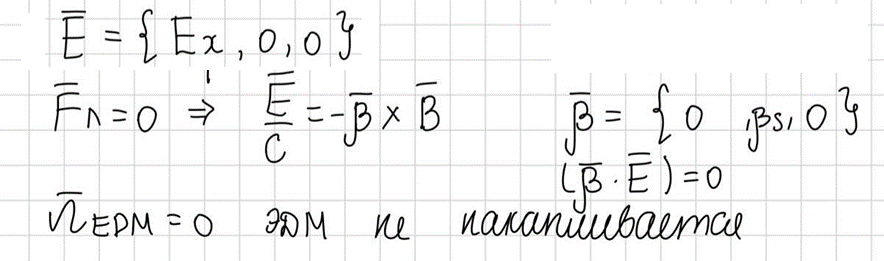 Ē = {Ex, 0, 0}
F̄л = 0 ⇒ Ē/c = -β̄ × B̄ β̄ = {0, βs, 0}
(β̄ · Ē) = 0
Ω̄EDM = 0 ЭДМ не накапливается